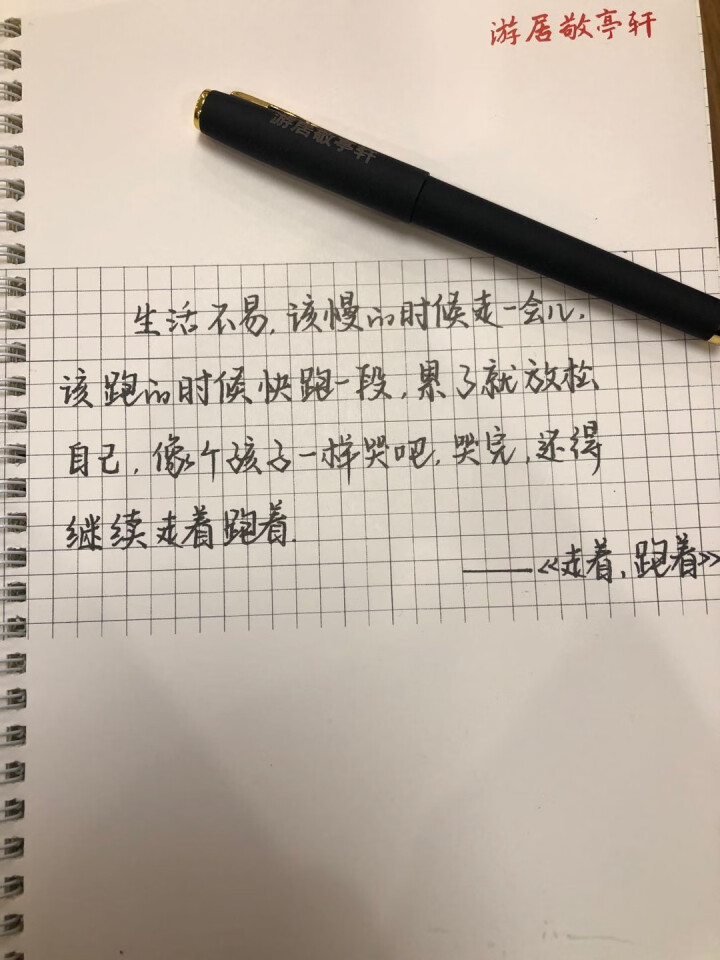 游居敬亭轩
游居敬亭轩
生活不易,该慢的时候走一会儿,
该跑的时候快跑一段,累了就放松
自己,像个孩子一样哭吧,哭完,还得
继续走着跑着.
——《走着,跑着》